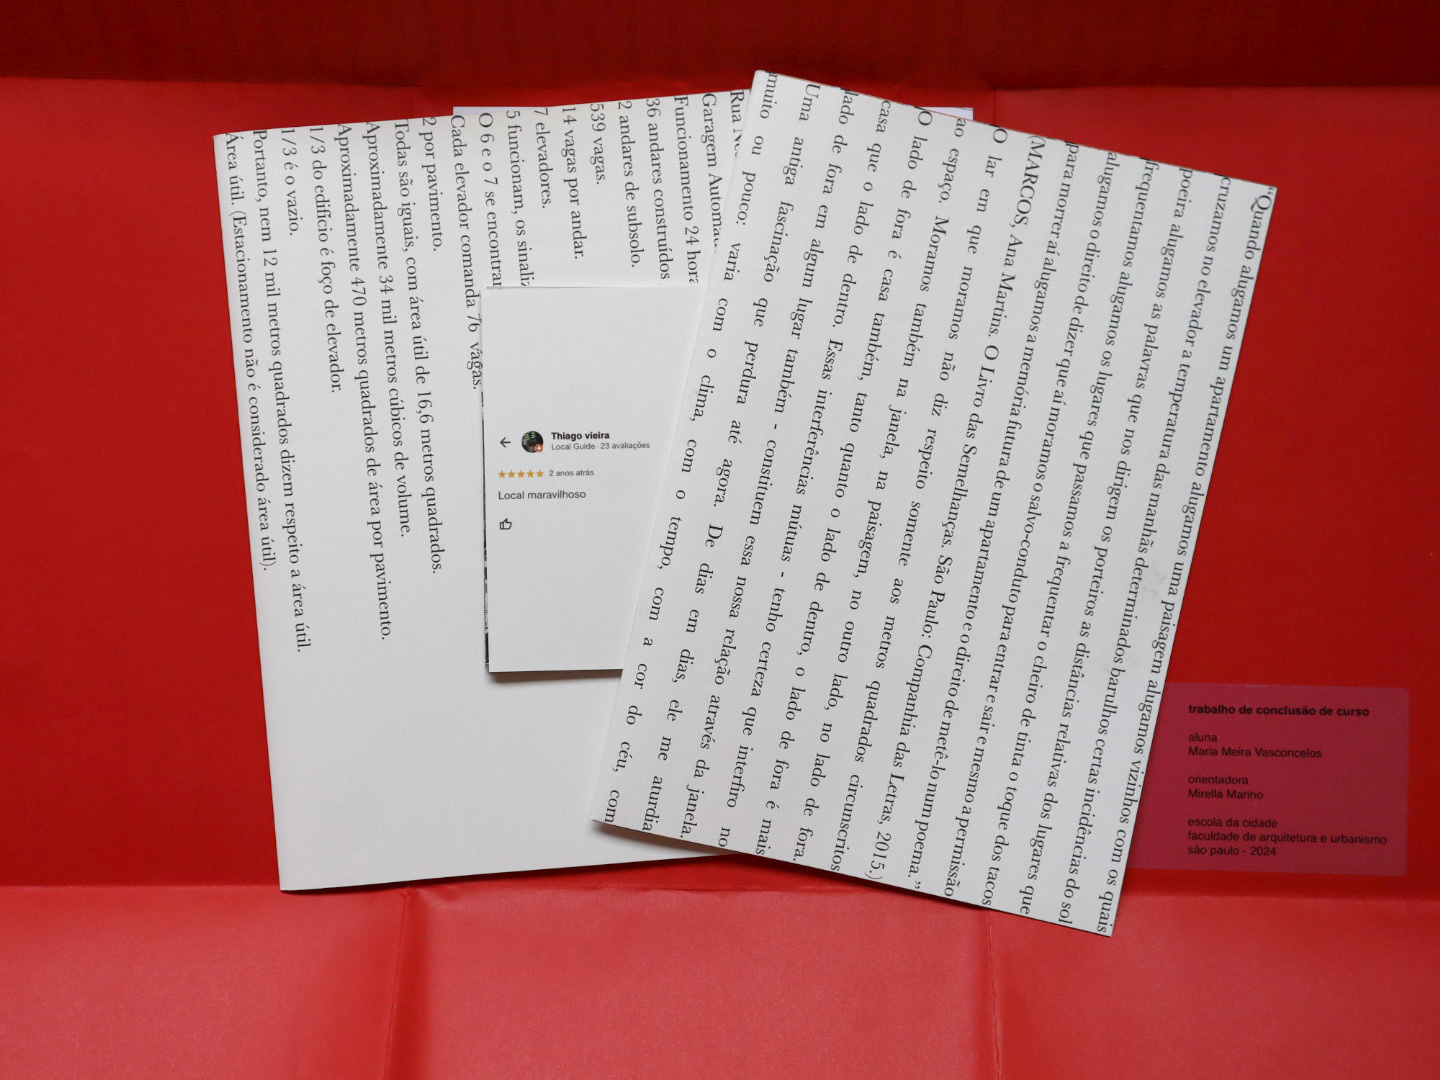 Rua
Garagem
Funcionamento 24
36 andares construídos
2 andares de subsolo.
539 vagas.
14 vagas por andar.
7 elevadores.
5 funcionam, os
O 6 e o 7 se
Cada elevador comanda 76 vagas.
2 por pavimento.
Todas são iguais, com área útil de 16,6 metros quadrados.
Aproximadamente 34 mil metros cúbicos de volume.
Aproximadamente 470 metros quadrados de área por pavimento.
1/3 do edifício é foço de elevador.
1/3 é o vazio.
Portanto, nem 12 mil metros quadrados dizem respeito a área útil.
Área útil. (Estacionamento não é considerado área útil).
Thiago vieira
Local Guide · 23 avaliações
2 anos atrás
Local maravilhoso
“Quando alugamos um apartamento alugamos uma paisagem alugamos vizinhos com os quais
cruzamos no elevador a temperatura das manhãs determinados barulhos certas incidências do sol
poeira alugamos as palavras que nos dirigem os porteiros as distâncias relativas dos lugares que
frequentamos alugamos os lugares que passamos a frequentar o cheiro de tinta o toque dos tacos
alugamos o direito de dizer que aí moramos o salvo-conduto para entrar e sair e mesmo a permissão
para morrer aí alugamos a memória futura de um apartamento e o direito de metê-lo num poema.”
(MARCOS, Ana Martins. O Livro das Semelhanças. São Paulo: Companhia das Letras, 2015.)
O lar em que moramos não diz respeito somente aos metros quadrados circunscritos
ao espaço. Moramos também na janela, na paisagem, no outro lado, no lado de fora.
O lado de fora é casa também, tanto quanto o lado de dentro, o lado de fora é mais
casa que o lado de dentro. Essas interferências mútuas - tenho certeza que interfiro no
lado de fora em algum lugar também - constituem essa nossa relação através da janela.
Uma antiga fascinação que perdura até agora. De dias em dias, ele me aturdia
muito ou pouco; varia com o clima, com o tempo, com a cor do céu, com
trabalho de conclusão de curso
aluna
Maria Meira Vasconcelos
orientadora
Mirella Marino
escola da cidade
faculdade de arquitetura e urbanismo
são paulo - 2024